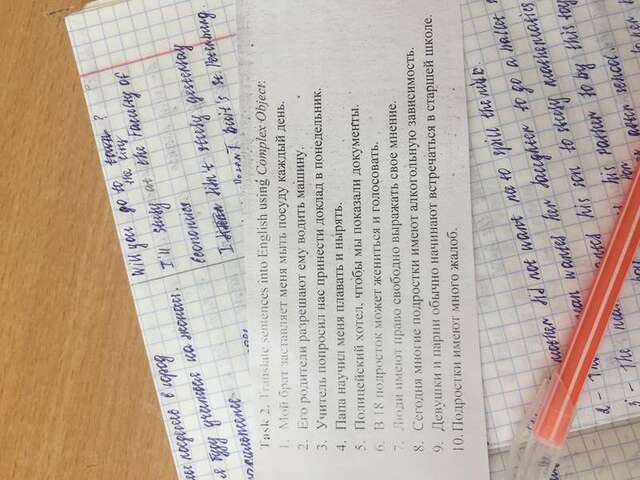 Will you go to the city ?
I'll study at the Faculty of
economics
в город
я буду учиться на
I didn't study yesterday
Task 2. Translate sentences into English using Complex Object.
1. Мой брат заставляет меня мыть посуду каждый день.
2. Его родители разрешают ему водить машину.
3. Учитель попросил нас принести доклад в понедельник.
4. Папа научил меня плавать и нырять.
5. Полицейский хотел, чтобы мы показали документы.
6. В 18 подросток может жениться и голосовать.
7. Люди имеют право свободно выражать свое мнение.
8. Сегодня многие подростки имеют алкогольную зависимость.
9. Девушки и парни обычно начинают встречаться в старшей школе.
10. Подростки имеют много жалоб.
mother did not want me to spill the milk.
2 - The wants her daughter to go a ballet
3 - The his son to study mathematics
his father to by this toy
after school.